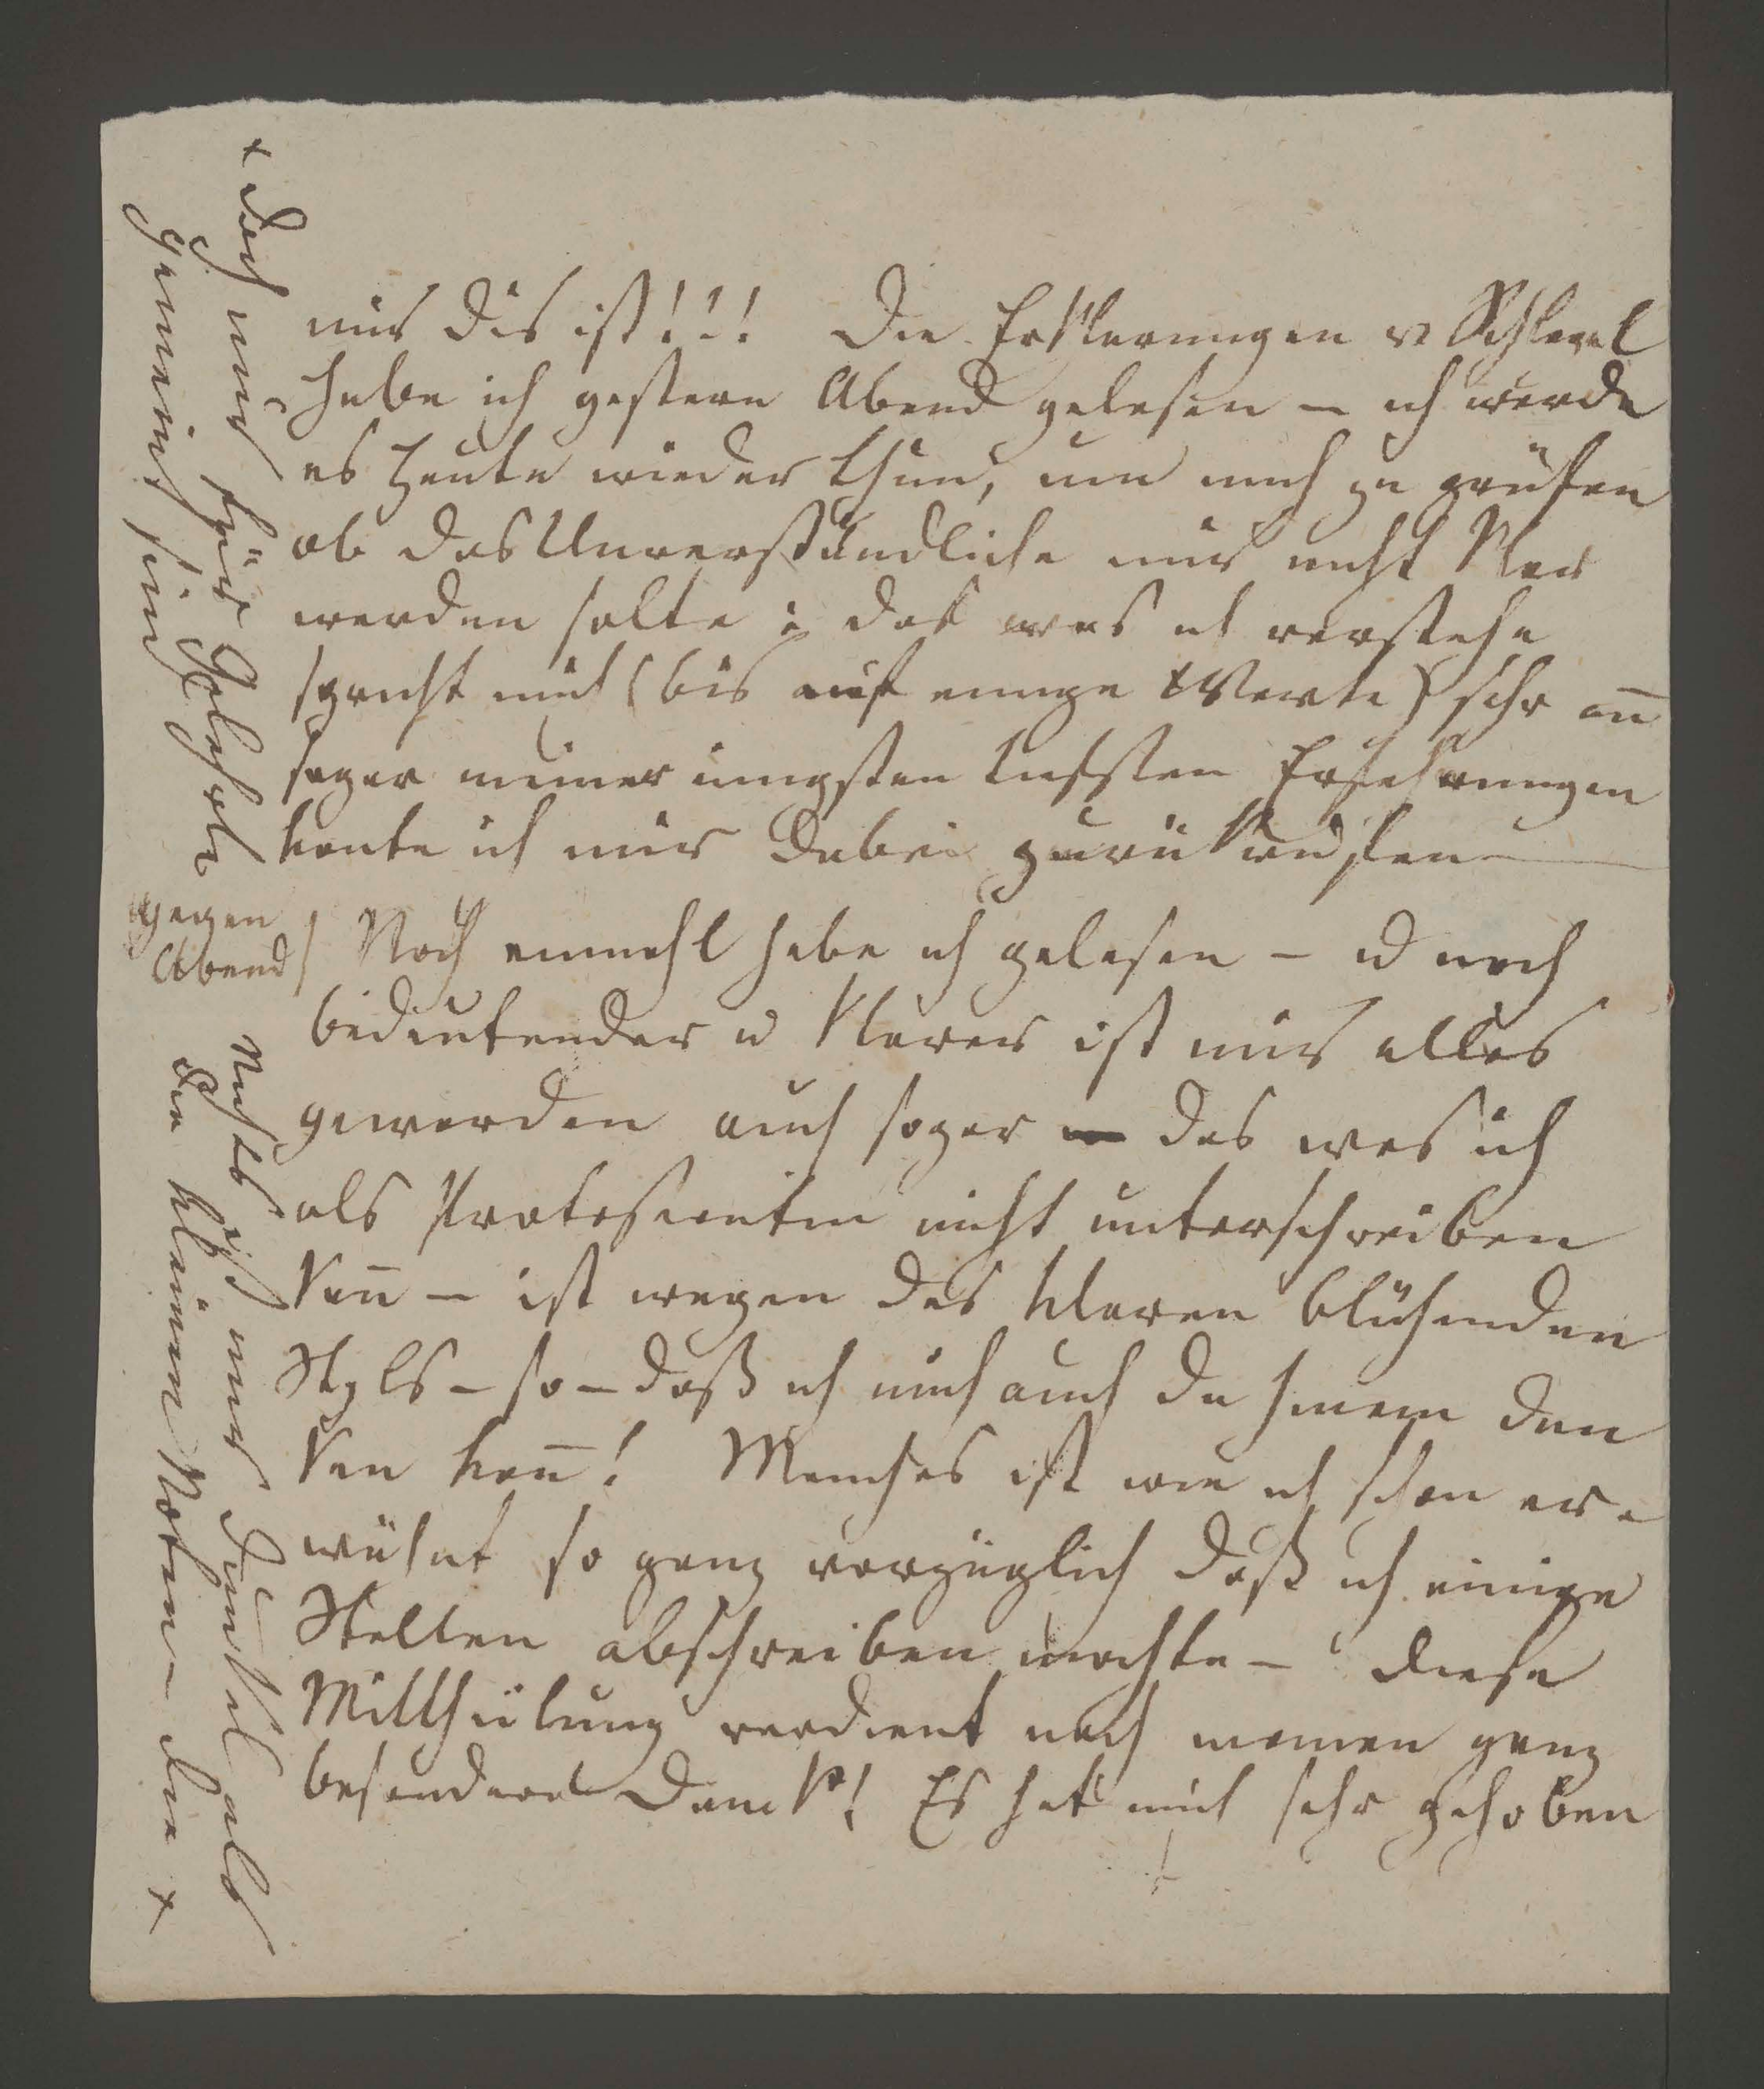 mir dis ist!!! Die Erklärungen v Schlegel
habe ich gestern Abend gelesen – ich werde
es heute wieder thun, um mich zu prüfen
ob das Unverständliche mir nicht klar
werden solte; das was ich verstehe
spricht mich (bis auf einige Worte) sehr an
sogar meiner iüngsten tiefsten Erfahrungen
konte ich mir dabei zurükrufen –
gegen
Abend
Noch einmahl habe ich gelesen – u noch
bedeutender u klarer ist mir alles
geworden auch sogar das was ich
als Protestantin nicht unterschreiben
kan̄ – ist wegen des klaren blühenden
Styls – so – daß ich mich auch da hinein den
ken kan̄! Manches ist wie ich schon er-
wähnt so ganz vorzüglich daß ich einige
Stellen abschreiben mochte – diese
Mittheilung verdient noch meinen ganz
besondern Dank! Es hat mich sehr gehoben
Nichts ist mir dunkel als
die kleinen Noten – die +
+ doch nur für Gelehrte
gemeint sind